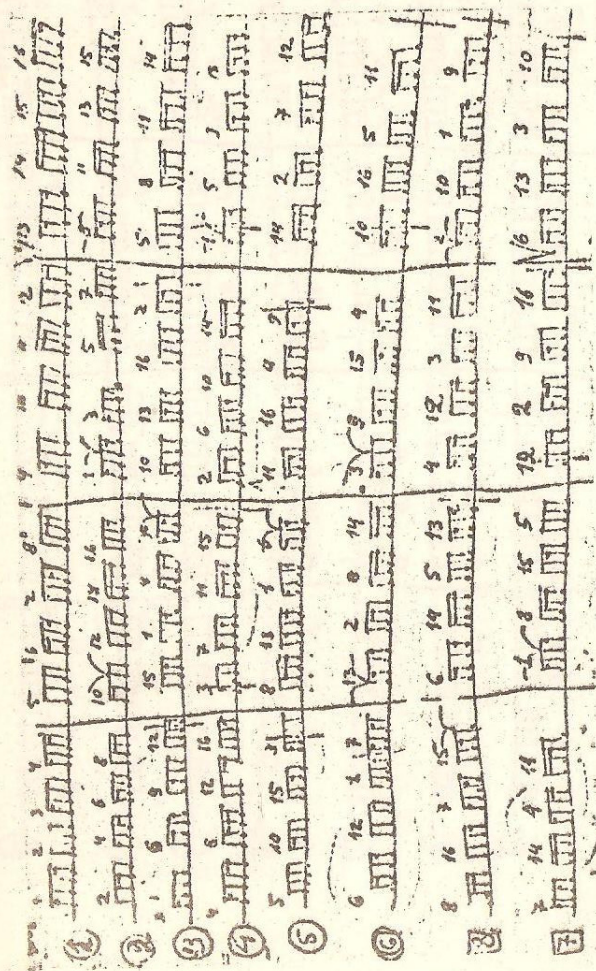 ① 1 2 3 4 5 6 7 8 9 10 11 12 13 14 15 16
② 2 4 6 8 10 12 14 16 1 3 5 7 9 11 13 15
③ 3 6 9 12 15 1 4 7 10 13 16 2 5 8 11 14
④ 4 8 12 16 3 7 11 15 2 6 10 14 1 5 9 13
⑤ 5 10 15 3 8 13 1 6 11 16 4 9 14 2 7 12
⑥ 6 12 1 7 13 2 8 14 3 9 15 4 10 16 5 11
8 8 16 7 15 6 14 5 13 4 12 3 11 2 10 1 9
7 7 14 4 11 1 8 15 5 12 2 9 16 6 13 3 10